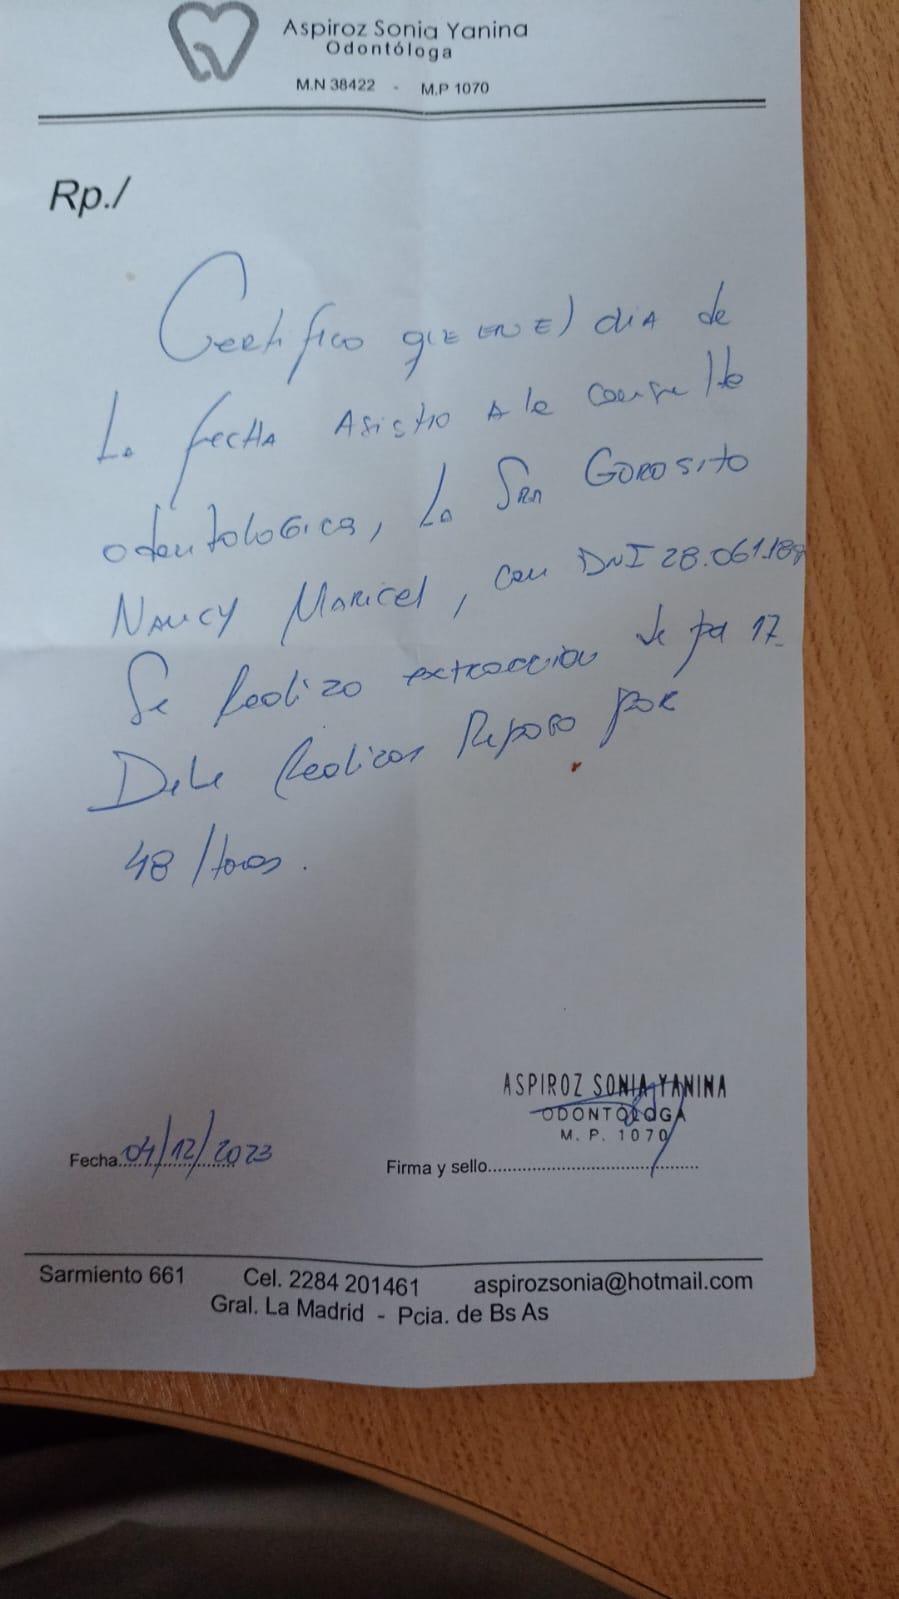 Aspiroz Sonia Yanina
Odontóloga
M.N 38422 - M.P 1070
Rp./
Certifico que en el dia de
La fecha Asistio A la consulta
odontologica, La Sra Gorosito
Nancy Maricel, con DNI 28.061.187
Se Realizo extraccion de pza 17
Debe Realizar Reposo por
48 Horas.
ASPIROZ SONIA YANINA
ODONTÓLOGA
M. P. 1070
Fecha 04/12/2023
Firma y sello
Sarmiento 661 Cel. 2284 201461 aspirozsonia@hotmail.com
Gral. La Madrid - Pcia. de Bs As